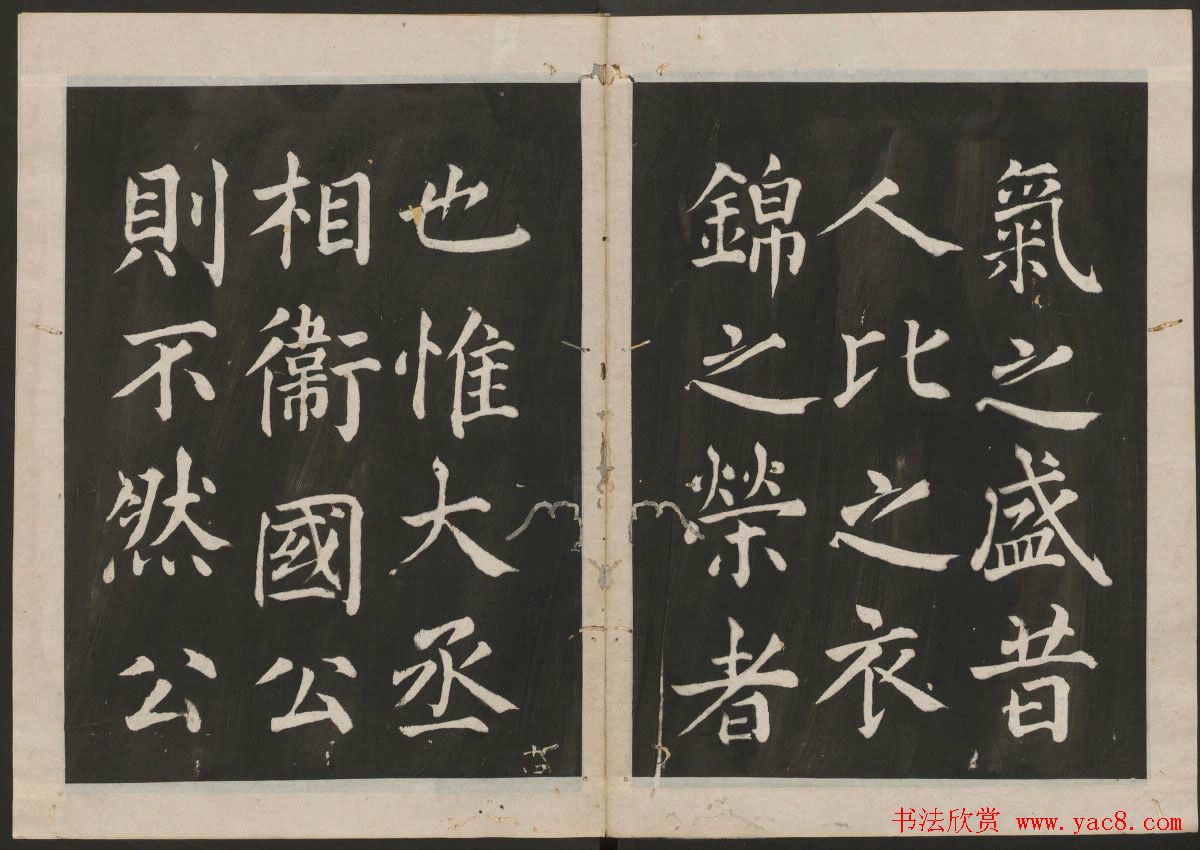 氣之盛昔
人比之衣
錦之榮者
也惟大丞
相衞國公
則不然公
书法欣赏 www.yac8.com